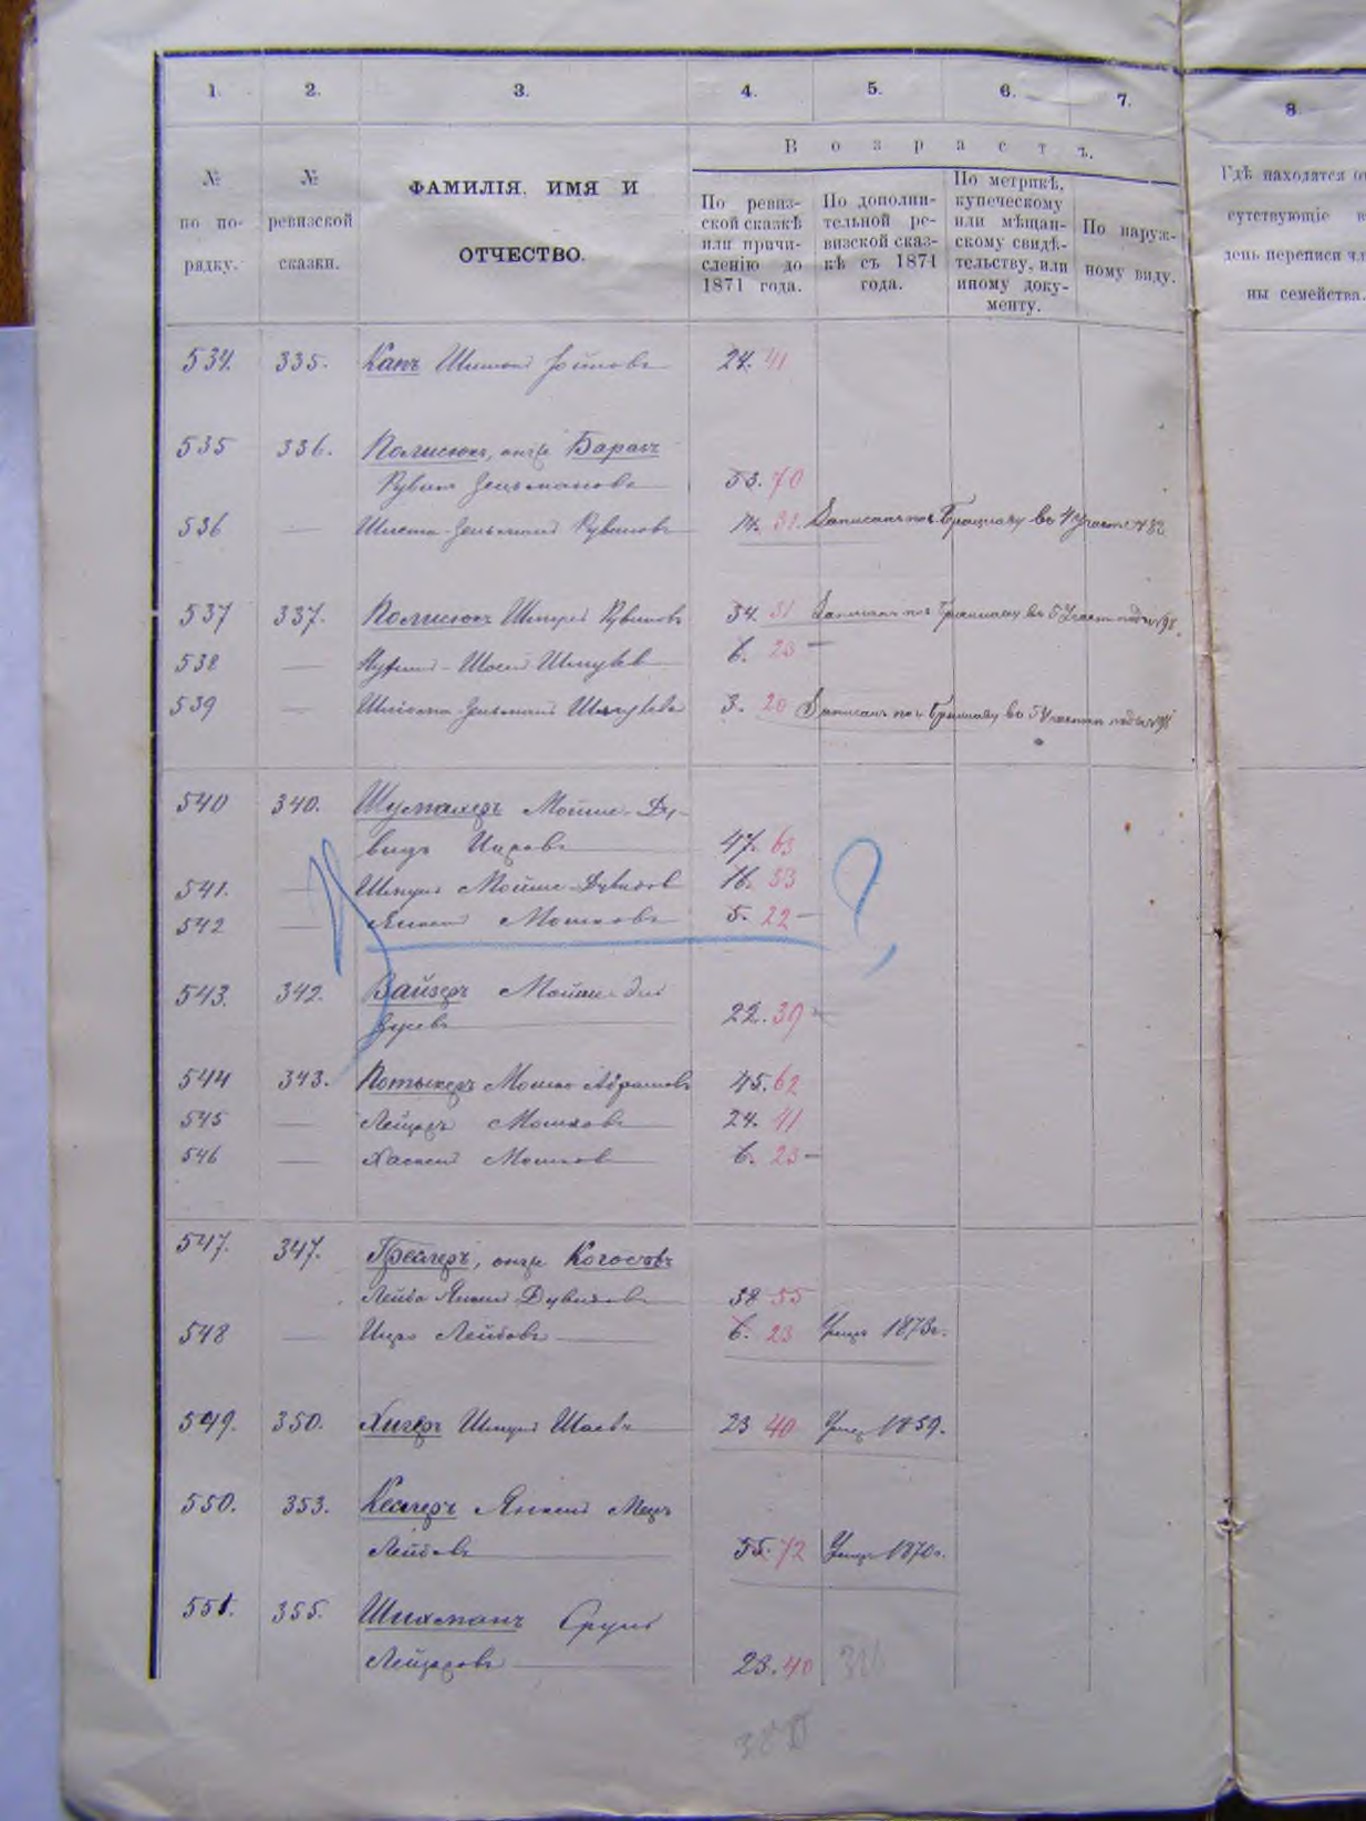 1. 2. 3. 4. 5. 6. 7. 8.
Возрастъ.
№ по по-рядку.
№ ревизской сказки.
ФАМИЛІЯ, ИМЯ И
ОТЧЕСТВО.
По ревиз-
ской сказкѣ
или причи-
сленію до
1871 года.
По дополни-
тельной ре-
визской сказ-
кѣ съ 1871
года.
По метрикѣ,
купеческому
или мѣщан-
скому свидѣ-
тельству, или
иному доку-
менту.
По наруж-
ному виду.
Гдѣ находятся от
сутствующіе в
день переписи чл
ны семейства.
534. 335. Капъ Шимон 24. 41
535 336. Полисюкъ, онже Баракъ
Рувинъ Зельмановъ 53. 70
536 — Зельманъ Рувиновъ 14. 31. Записанъ по Брацлаву въ 4 Участ.
537 337. Полисюкъ Шмуль Рувиновъ 34. 51 Записанъ по Брацлаву въ 5 Участ.
538 — 6. 23 —
539 — Зельманъ Шмулевъ 3. 20 Записанъ по Брацлаву въ 5 Участ.
540 340. Шумахеръ Мойше-Ду-
видъ Ицковъ 47. 63
541. — Шмуль Мойше-Дувидов 16. 33
542 — Янкель Мошковъ 5. 22 — ?
543. 342. Вайзеръ Мойше 22. 39 —
544 343. Потыкеръ Мошко Абрамовъ 45. 62
545 — Лейзеръ Мошковъ 24. 41
546 — Хаскель Мошков 6. 23 —
547. 347. онже Когосовъ
Лейба Янкель Дувидовъ 38 55
548 — Ицко Лейбовъ 6. 23 Умеръ 1873г.
549. 350. Хигеръ Шмуль Шаевъ 23 40 Умер 1859.
550. 353. Кеслеръ Янкель Меер
Лейбовъ 55. 72 Умеръ 1870г.
551. 355. Шихманъ Сруль
Лейзеровъ 23. 40